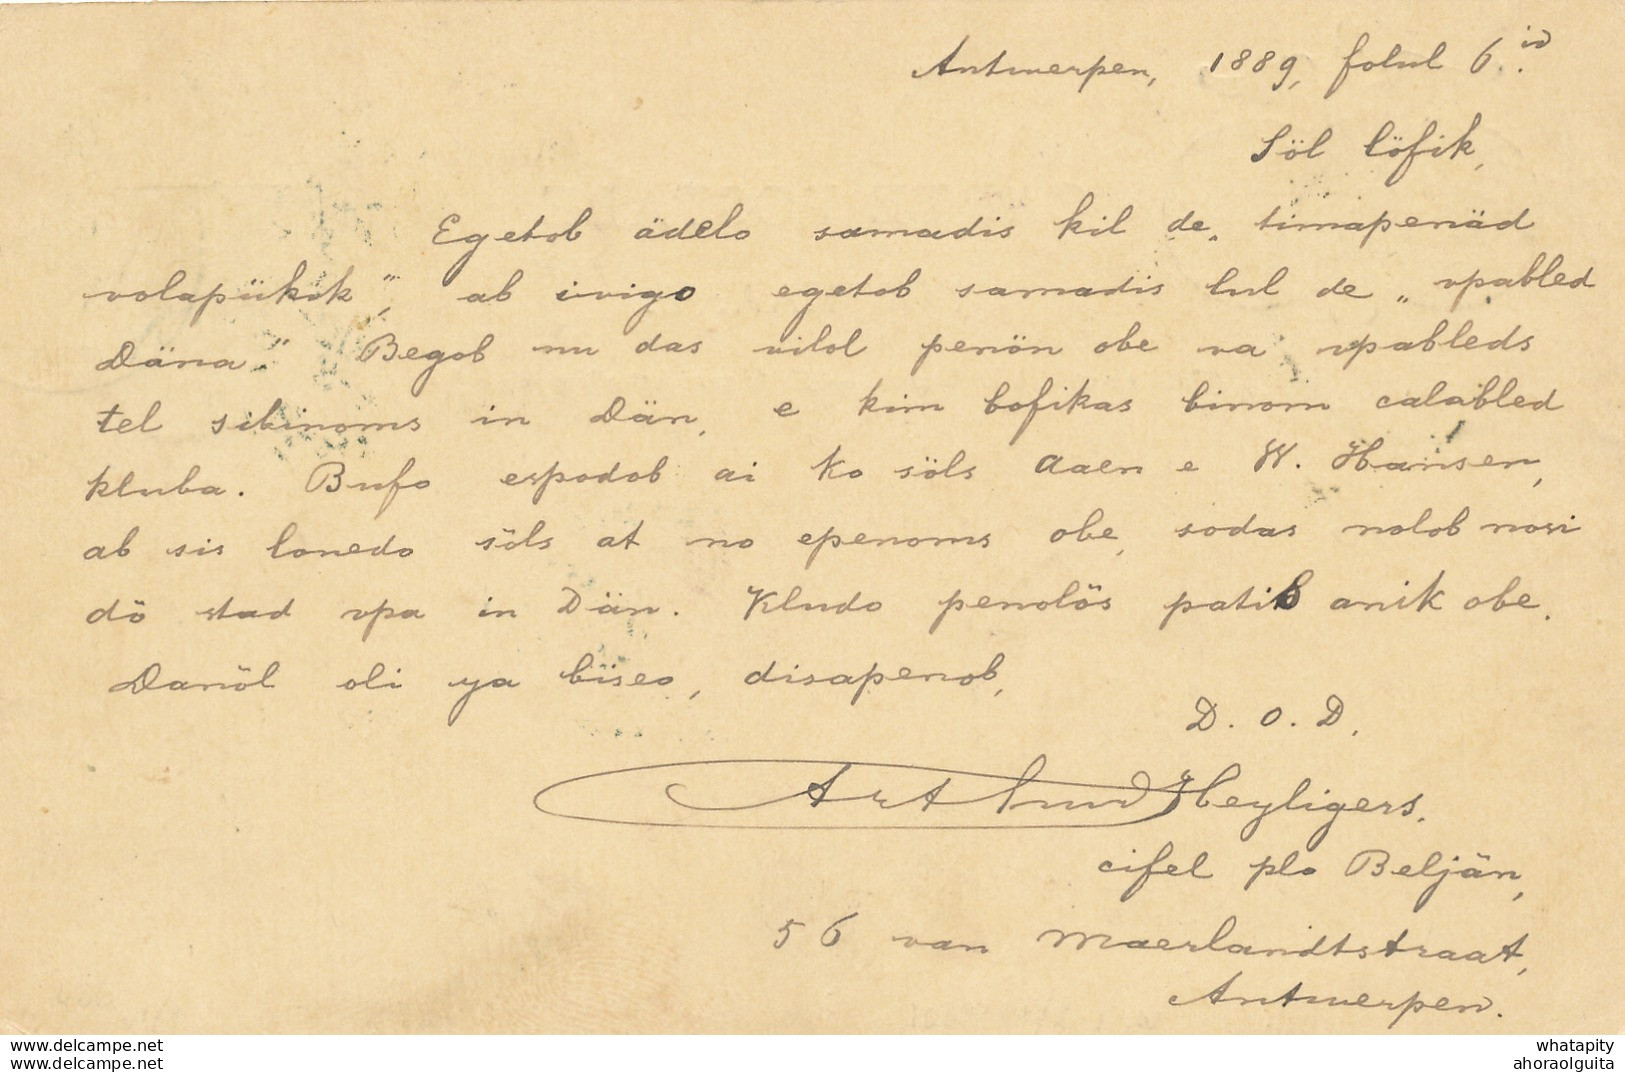 Antwerpen, 1889, folul 6.id
Söl löfik,
Egetob ädelo samadis kil de „timapenäd
volapükik“, ab ivigo egetob samadis lul de „vpabled
Däna.“ Begob nu das vilol penön obe va vpableds
tel sibinoms in Dän, e kim bofikas binom calabled
kluba. Bufo espodob ai ko söls Aaen e W. Hansen,
ab sis lonedo söls at no epenoms obe, sodas nolob nosi
dö stad vpa in Dän. Kludo penolös patib anik obe.
Danöl oli ya büseo, disapenob,
D. O. D.
Arthur Heyligers.
cifel plo Beljän,
56 van Maerlandtstraat,
Antwerpen.
www.delcampe.net whatapity
www.delcampe.net ahoraolguita